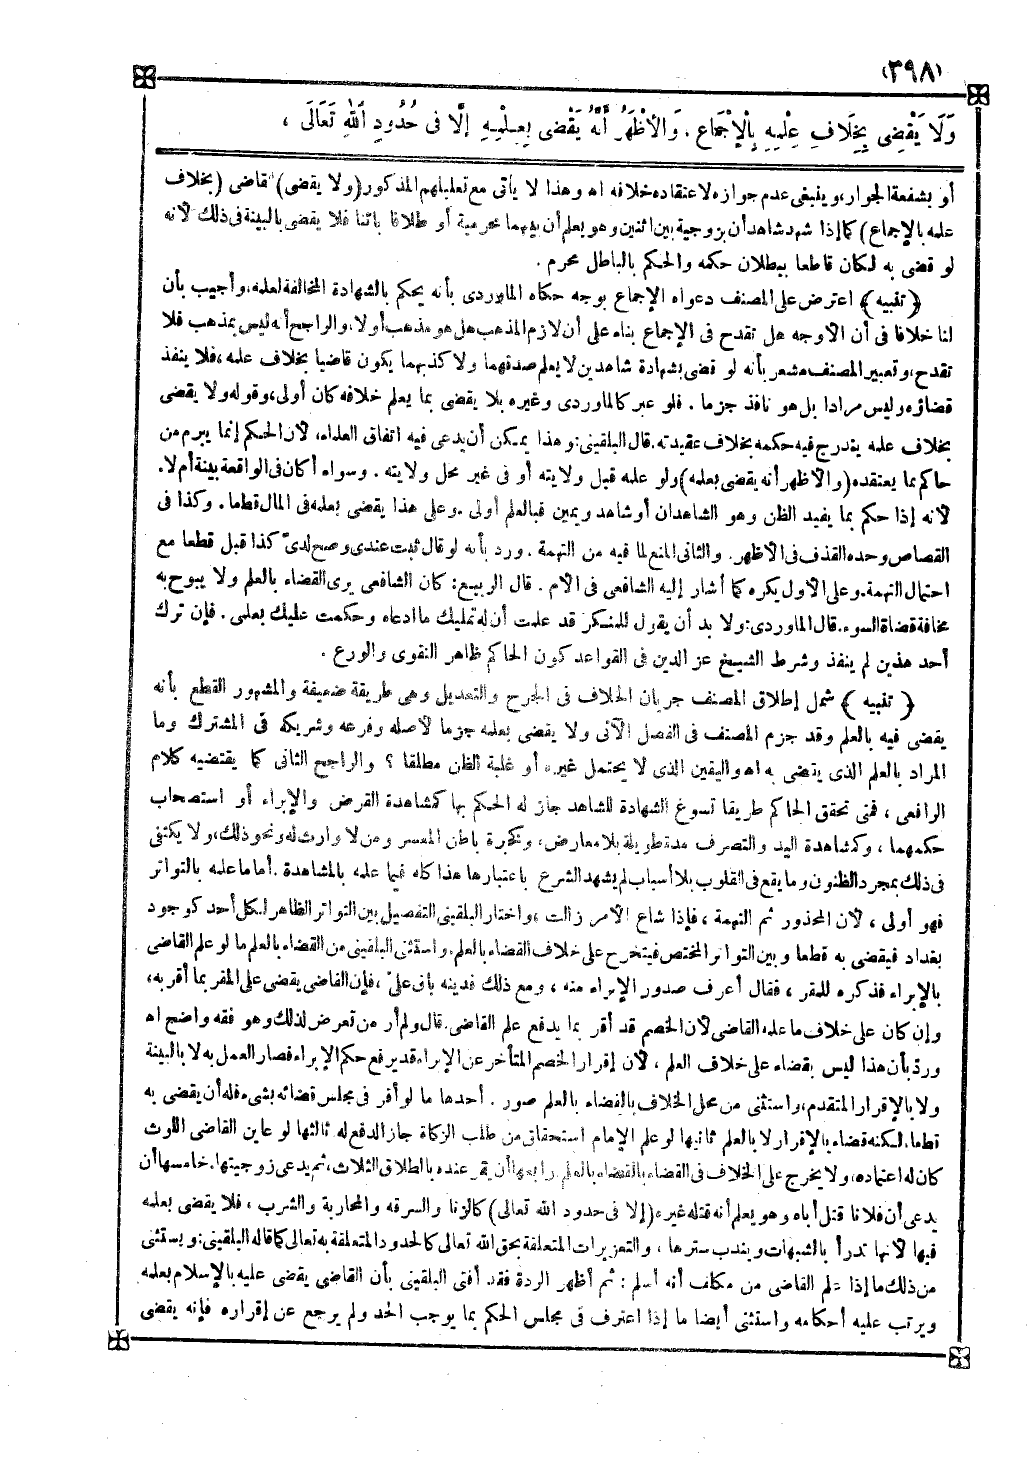 (٣٩٨)
وَلَا يَقْضِى بِخِلَافِ عِلْمِهِ بِالْإِجْمَاعِ . وَالْأَظْهَرُ أَنَّهُ يَقْضِى بِعِلْمِهِ إِلَّا فِى حُدُودِ اللهِ تَعَالَى ،
أو بشفعة الجوار، وينبغى عدم جوازه لاعتقاده خلافه اه وهذا لا يأتى مع تعليلهم المذكور (ولا يقضى) القاضى (بخلاف
علمه بالإجماع) كما إذا شهد شاهدان بزوجية بين اثنين وهو يعلم أن بينهما محرمية أو طلاقا بائنا فلا يقضى بالبينة فى ذلك لأنه
لو قضى به لكان قاطعا ببطلان حكمه والحكم بالباطل محرم .
﴿ تنبيه ﴾ اعترض على المصنف دعواه الإجماع بوجه حكاه الماوردى بأنه يحكم بالشهادة المخالفة لعلمه، وأجيب بأن
لنا خلافا فى أن الأوجه هل تقدح فى الإجماع بناء على أن لازم المذهب هل هو مذهب أولا، والراجح أنه ليس بمذهب فلا
تقدح، وتعبير المصنف مشعر بأنه لو قضى بشهادة شاهدين لا يعلم صدقهما ولا كذبهما يكون قاضيا بخلاف علمه، فلا ينفذ
قضاؤه وليس مرادا بل هو نافذ جزما . فلو عبر كالماوردى وغيره بلا يقضى بما يعلم خلافه كان أولى، وقوله ولا يقضى
بخلاف علمه يندرج فيه حكمه بخلاف عقيدته. قال البلقينى: وهذا يمكن أن يدعى فيه اتفاق العلماء، لأن الحكم إنما يبرم من
حاكم بما يعتقده (والأظهر أنه يقضى بعلمه) ولو علمه قبل ولايته أو فى غير محل ولايته . وسواء أكان فى الواقعة بينة أم لا.
لأنه إذا حكم بما يفيد الظن وهو الشاهدان أو شاهد ويمين فبالعلم أولى . وعلى هذا يقضى بعلمه فى المال قطعا . وكذا فى
القصاص وحده القذف فى الأظهر. والثانى المنع لما فيه من التهمة . ورد بأنه لو قال ثبت عندى وصح لدىّ كذا قبل قطعا مع
احتمال التهمة. وعلى الأول يكره كما أشار إليه الشافعى فى الأم . قال الربيع: كان الشافعى يرى القضاء بالعلم ولا يبوح به
مخافة قضاة السوء. قال الماوردى: ولا بد أن يقول للمنكر قد علمت أن له تمليك ما ادعاه وحكمت عليك بعلمى . فإن ترك
أحد هذين لم ينفذ وشرط الشيخ عز الدين فى القواعد كون الحاكم ظاهر التقوى والورع .
﴿ تنبيه ﴾ شمل إطلاق المصنف جريان الخلاف فى الجرح والتعديل وهى طريقة ضعيفة والمشهور القطع بأنه
يقضى فيه بالعلم وقد جزم المصنف فى الفصل الآتى ولا يقضى بعلمه جزما لأصله وفرعه وشريكه فى المشترك وما
المراد بالعلم الذى يقضى به اه واليقين الذى لا يحتمل غيره أو غلبة الظن مطلقا ؟ والراجح الثانى كما يقتضيه كلام
الرافعى ، فمتى تحقق الحاكم طريقا تسوغ الشهادة للشاهد جاز له الحكم بها كمشاهدة القرض والإبراء أو استصحاب
حكمهما ، وكمشاهدة اليد والتصرف مدة طويلة بلا معارض، وكخبرة باطن المعسر ومن لا وارث له ونحو ذلك، ولا يكتفى
فى ذلك بمجرد الظنون وما يقع فى القلوب بلا أسباب لم يشهد الشرع باعتبارها هذا كله فيما علمه بالمشاهدة . أما ما علمه بالتواتر
فهو أولى ، لأن المحذور ثم التهمة ، فإذا شاع الأمر زالت ، واختار البلقينى التفصيل بين التواتر الظاهر لكل أحد كوجود
بغداد فيقضى به قطعا وبين التواتر المختص فيتخرج على خلاف القضاء بالعلم. واستثنى البلقينى من القضاء بالعلم ما لو علم القاضى
بالإبراء فذكره للمقر ، فقال أعرف صدور الإبراء منه ، ومع ذلك فدينه باق علىّ ، فإن القاضى يقضى على المقر بما أقر به،
وإن كان على خلاف ما علمه القاضى لأن الخصم قد أقر بما يدفع علم القاضى. قال ولم أر من تعرض لذلك وهو فقه واضح اه
وردّ بأن هذا ليس بقضاء على خلاف العلم ، لأن إقرار الخصم المتأخر عن الإبراء قد يرفع حكم الإبراء فصار العمل به لا بالبينة
ولا بالإقرار المتقدم، واستثنى من محل الخلاف بالقضاء بالعلم صور . أحدها ما لو أقر فى مجلس قضائه بشىء فله أن يقضى به
قطعا. لكنه قضاء بالإقرار لا بالعلم ثانيها لو علم الإمام استحقاق من طلب الزكاة جاز الدفع له ثالثها لو عاين القاضى اللوث
كان له اعتماده، ولا يخرج على الخلاف فى القضاء بالقضاء بالعلم رابعها أن يقر عنده بالطلاق الثلاث، ثم يدعى زوجيتها. خامسها أن
يدعى أن فلانا قتل أباه وهو يعلم أنه قتله غيره (إلا فى حدود الله تعالى) كالزنا والسرقه والمحاربة والشرب ، فلا يقضى بعلمه
فيها لأنها تدرأ بالشبهات ويندب سترها ، والتعزيرات المتعلقة بحق الله تعالى كالحدود المتعلقة به تعالى كما قاله البلقينى: ويستثنى
من ذلك ما إذا علم القاضى من مكلف أنه أسلم : ثم أظهر الردة فقد أفتى البلقينى بأن القاضى يقضى عليه بالإسلام بعلمه
ويرتب عليه أحكامه واستثنى أيضا ما إذا اعترف فى مجلس الحكم بما يوجب الحد ولم يرجع عن إقراره فإنه يقضى